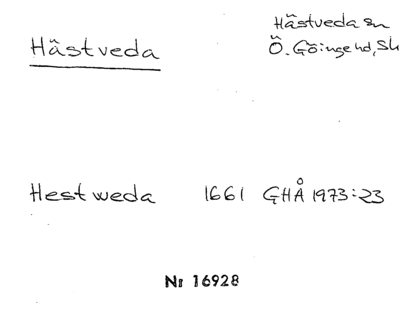 Hästveda
Hästveda sn
Ö. Göinge hd, Sk
Hestweda 1661 GHÅ 1973:23
Nr 16928